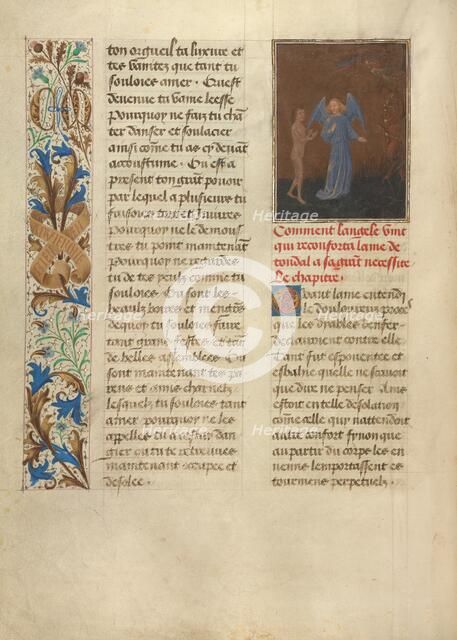 ton orgueil ta luxure et
tes vanitez que tant tu
souloies amer. Qu est
deuenue ta vaine leesse
Pourquoy ne fais tu chan
ter danser et soulacier
ainsi come tu as cy deuant
accoustume. Ou est a
present ton grant pouoir
par lequel a plusieurs tu
faisoies tort et iniures
Pourquoy ne le demous
tres tu point maintenant
Pourquoy ne regardes
tu de tes yeulx comme tu
souloies. Ou sont les
beaulx boires et mengiers
de quoy tu souloies faire
tant grans festes et tant
de belles assemblees. Ou
sont maintenant tes pa
rens et amis charnelz
lesquelz tu souloies tant
amer pourquoy ne les
appelles tu a cestui dan
gier ou tu te retreuues
maintenant occupee et
desolee.
Comment langele vint
qui reconforta lame de
tondal a sa grant necessite
Le chapitre.
Quant lame entendy
le douloureux proces
que les dyables denfer
declairoient contre elle
Tant fut espouentee et
esbahie quelle ne sauoit
que dire ne penser. Ains
estoit en telle desolacion
comme celle qui nattendoit
autre confort synon que
au partir du corps les en
nemis lemportassent es
tourmens perpetuelz.
Heritage
Heritage
Heritage
Heritage
Heritage
Heritage